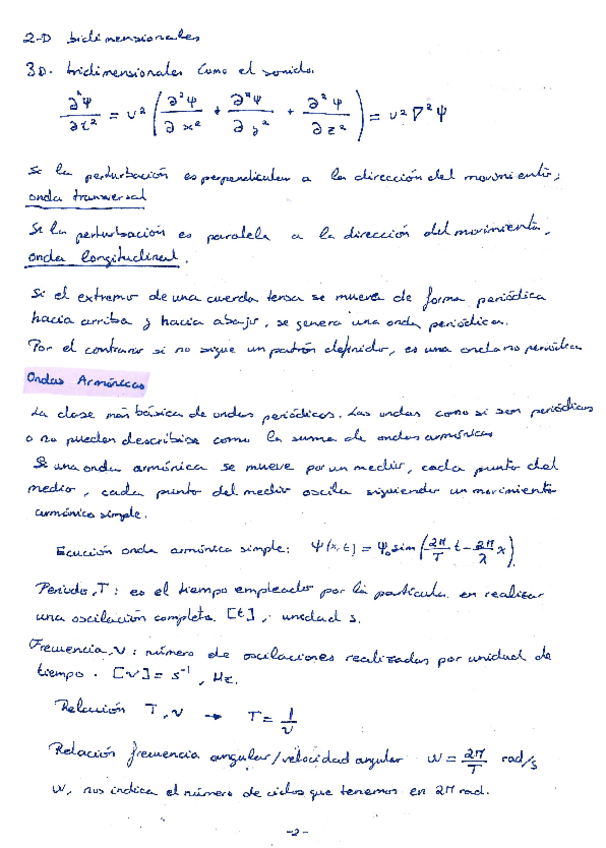 2-D bidimensionales
3D. tridimensionales como el sonido.
∂²Ψ/∂t² = v² (∂²Ψ/∂x² + ∂²Ψ/∂y² + ∂²Ψ/∂z²) = v² ∇² Ψ
Si la perturbación es perpendicular a la dirección del movimiento,
onda transversal
Si la perturbación es paralela a la dirección del movimiento,
onda longitudinal.
Si el extremo de una cuerda tensa se mueve de forma periódica
hacia arriba y hacia abajo, se genera una onda periódica.
Por el contrario si no sigue un patrón definido, es una onda no periódica
Ondas Armónicas
La clase más básica de ondas periódicas. Las ondas como si son periódicas
o no pueden describirse como la suma de ondas armónicas
Si una onda armónica se mueve por un medio, cada punto del
medio, cada punto del medio oscila siguiendo un movimiento
armónico simple.
Ecución onda armónica simple: Ψ(x,t) = Ψ₀ sin (2π/T t - 2π/λ x).
Periodo, T: es el tiempo empleado por la partícula en realizar
una oscilación completa. [t], unidad s.
Frecuencia, ν: número de oscilaciones realizadas por unidad de
tiempo. [ν] = s⁻¹, Hz.
Relación T, ν → T = 1/ν
Relación frecuencia angular/velocidad angular W = 2π/T rad/s
W, nos indica el número de ciclos que tenemos en 2π rad.
-2-